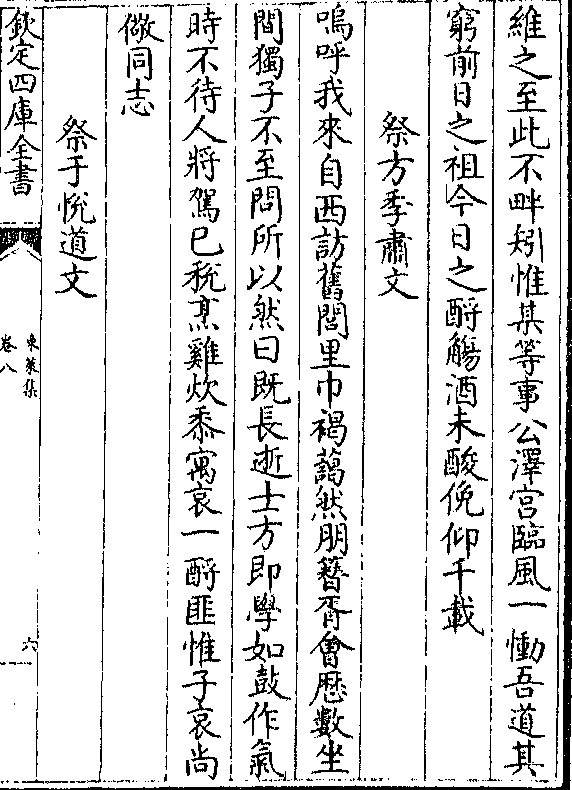 維之至此不畔矧惟某等事公澤宫臨風一慟吾道其
窮前日之祖今日之酹觴酒未酸俛仰千載
祭方季肅文
嗚呼我來自西訪舊閭里巾褐藹然朋簪胥會歴數坐
間獨子不至問所以然曰既長逝士方即學如鼓作氣
時不待人將駕已稅烹雞炊黍寓哀一酹匪惟子哀尚
儆同志
祭于悅道文
欽定四庫全書
東萊集
卷八
六